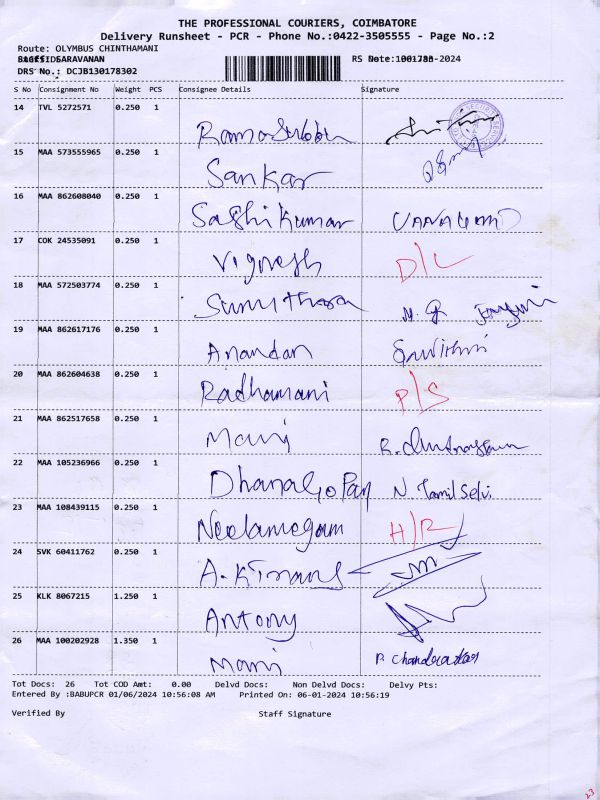 THE PROFESSIONAL COURIERS, COIMBATORE
Delivery Runsheet - PCR - Phone No.:0422-3505555 - Page No.:2
Route: OLYMBUS CHINTHAMANI
SARAVANAN RS Date: -2024
DRS No.: DCJB130178302
S No Consignment No Weight PCS Consignee Details Signature
14 TVL 5272571 0.250 1
15 MAA 573555965 0.250 1 Sankar
16 MAA 862608040 0.250 1 Sashikumar
17 COK 24535091 0.250 1 Vignesh D/L
18 MAA 572503774 0.250 1
19 MAA 862617176 0.250 1 Anandan
20 MAA 862604638 0.250 1 Radhamani P/S
21 MAA 862517658 0.250 1 Mani
22 MAA 105236966 0.250 1 DhanaGoPan N Tamil Selvi
23 MAA 108439115 0.250 1 Neelamegam H/R
24 SVK 60411762 0.250 1
25 KLK 8067215 1.250 1 Antony
26 MAA 100202928 1.350 1 Mani P. Chandrasekar
Tot Docs: 26 Tot COD Amt: 0.00 Delvd Docs: Non Delvd Docs: Delvy Pts:
Entered By :BABUPCR 01/06/2024 10:56:08 AM Printed On: 06-01-2024 10:56:19
Verified By Staff Signature
23